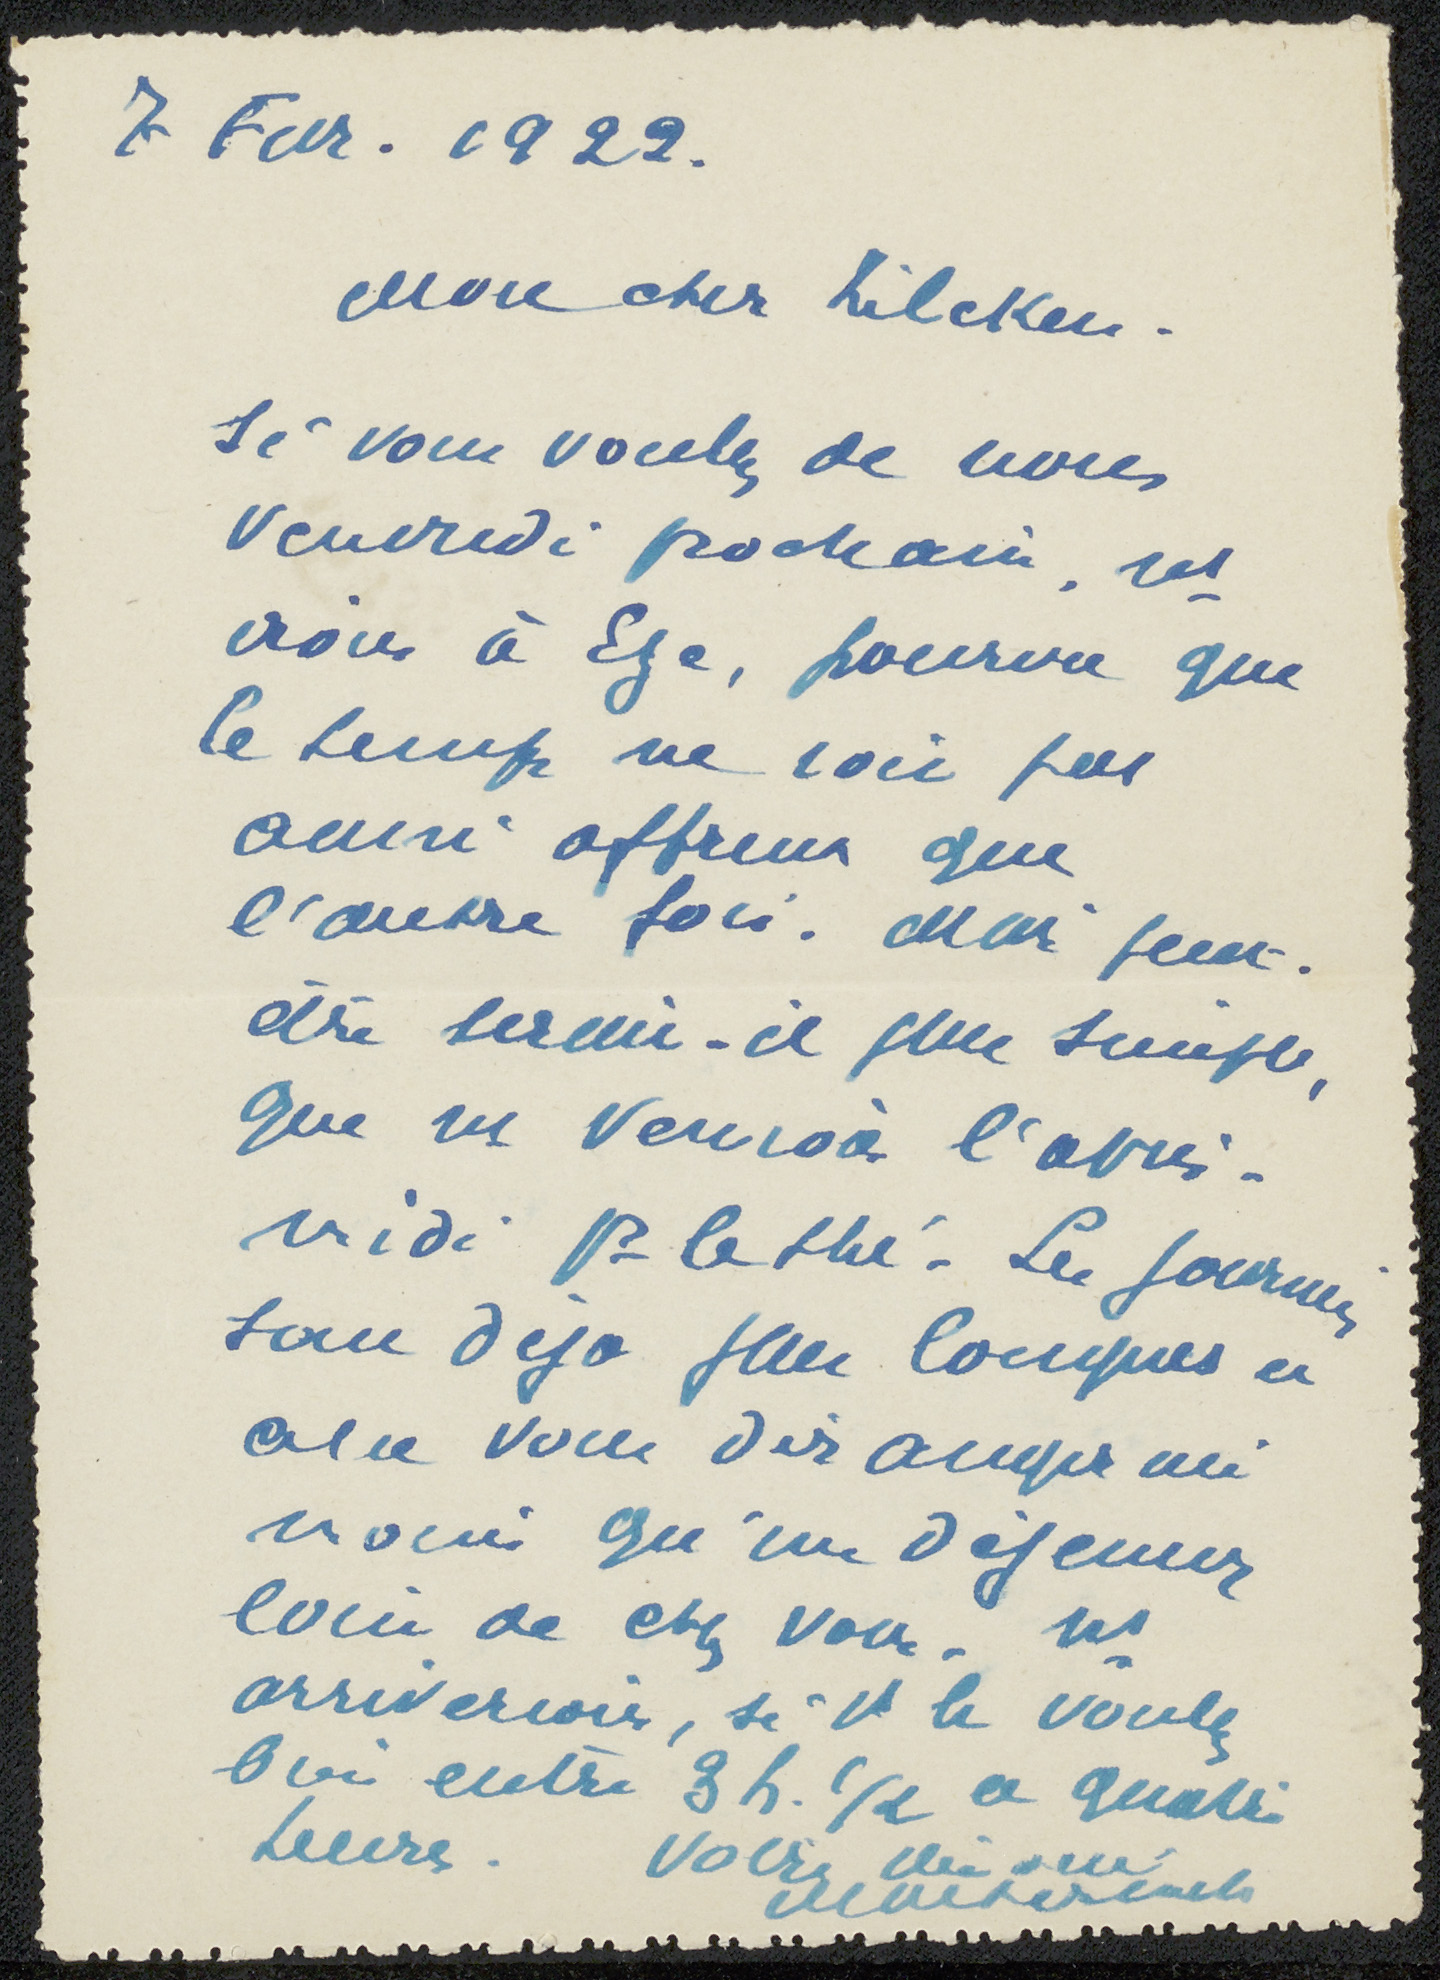 7 Fevr. 1922.
Mon cher Zilcken.
Si vous voulez de nous
vendredi prochain, ns
irons à Eze, pourvu que
le temps ne soit pas
aussi affreux que
l'autre fois. Mais peut-
être serait-il plus simple,
que ns venions l'après-
midi pr le thé. Les journées
sont déjà plus longues et
cela vous dérangerait
moins qu'un déjeuner
loin de chez vous. Ns
arriverions, si vs le voulez
bien entre 3 h. 1/2 et quatre
heures. Votre dévoué
Maeterlinck